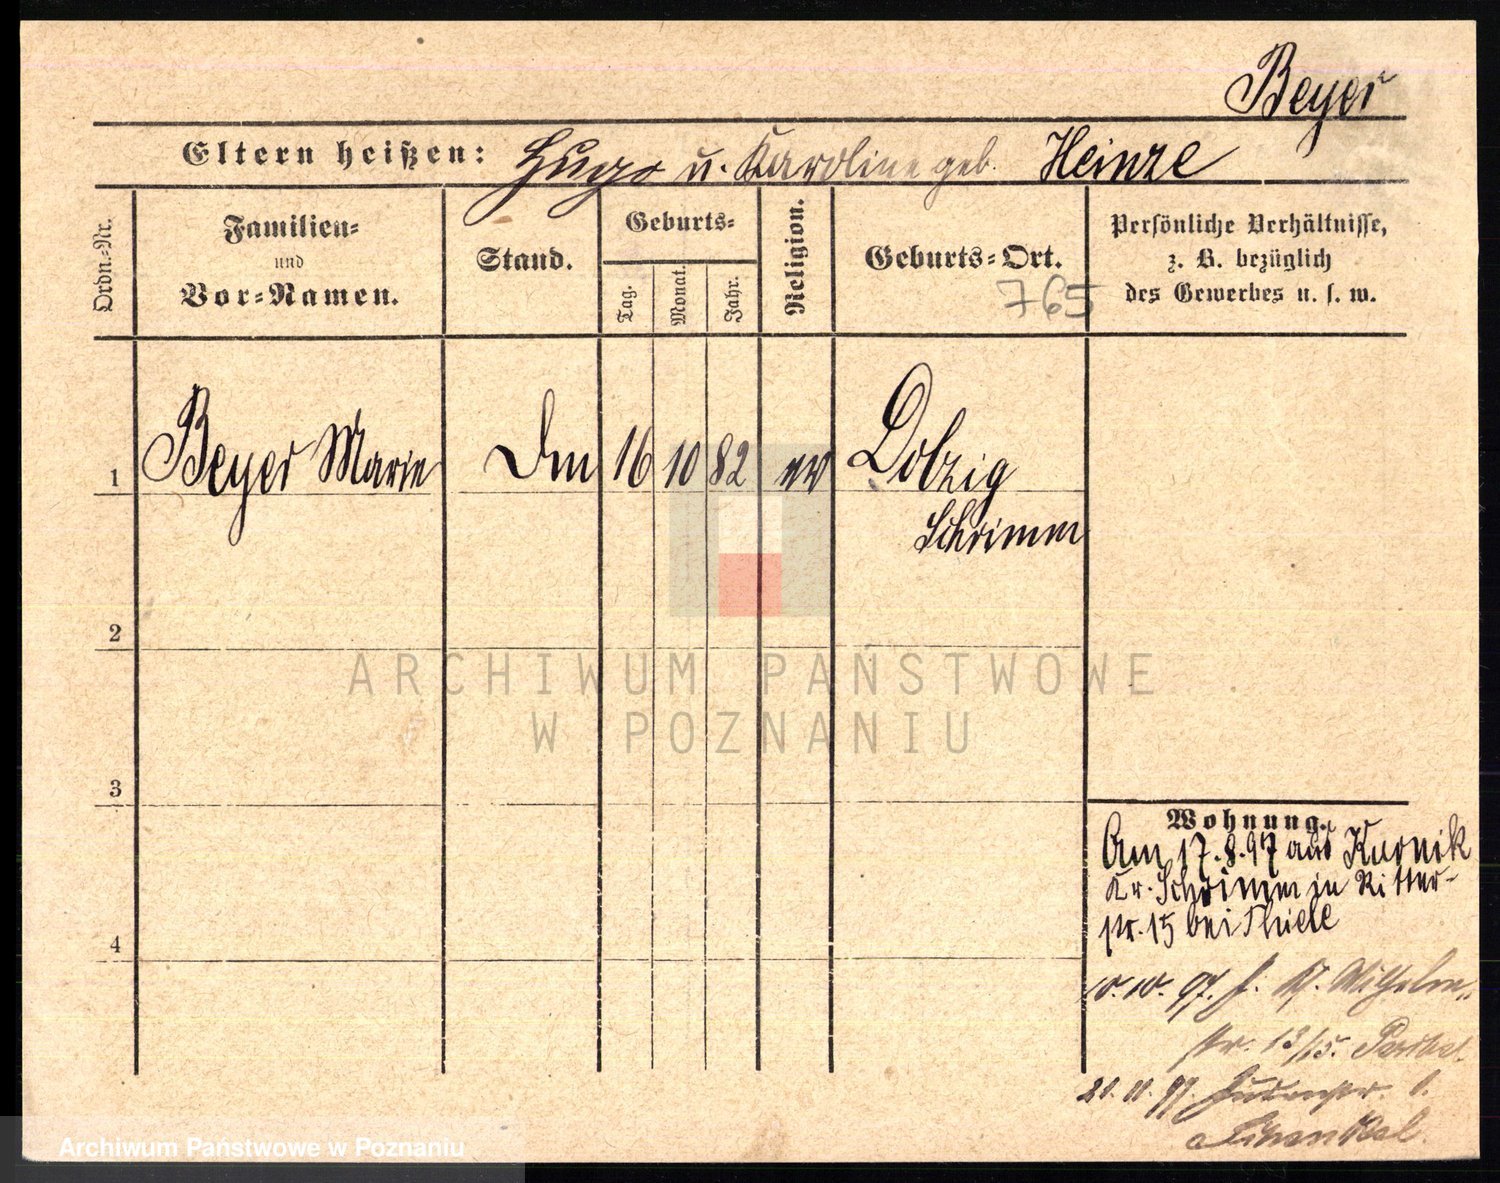 Beyer
Eltern heißen: Hugo u. Karoline geb. Heinze
Ordn.-Nr.
Familien-
und
Vor-Namen.
Stand.
Geburts-
Tag.
Monat.
Jahr.
Religion.
Geburts-Ort.
765
Persönliche Verhältnisse,
z. B. bezüglich
des Gewerbes u. s. w.
1 Beyer Marie Dm 16 10 82 ev Dolzig
Schrimm
2
ARCHIWUM PAŃSTWOWE
W POZNANIU
3
Wohnung.
Am 17.8.97 aus Kurnik
Kr. Schrimm in Ritter-
str. 15 bei Thiele
4
10.10.97. Wilhelm-
str. 13/15.
21.11.97. 1.
Archiwum Państwowe w Poznaniu